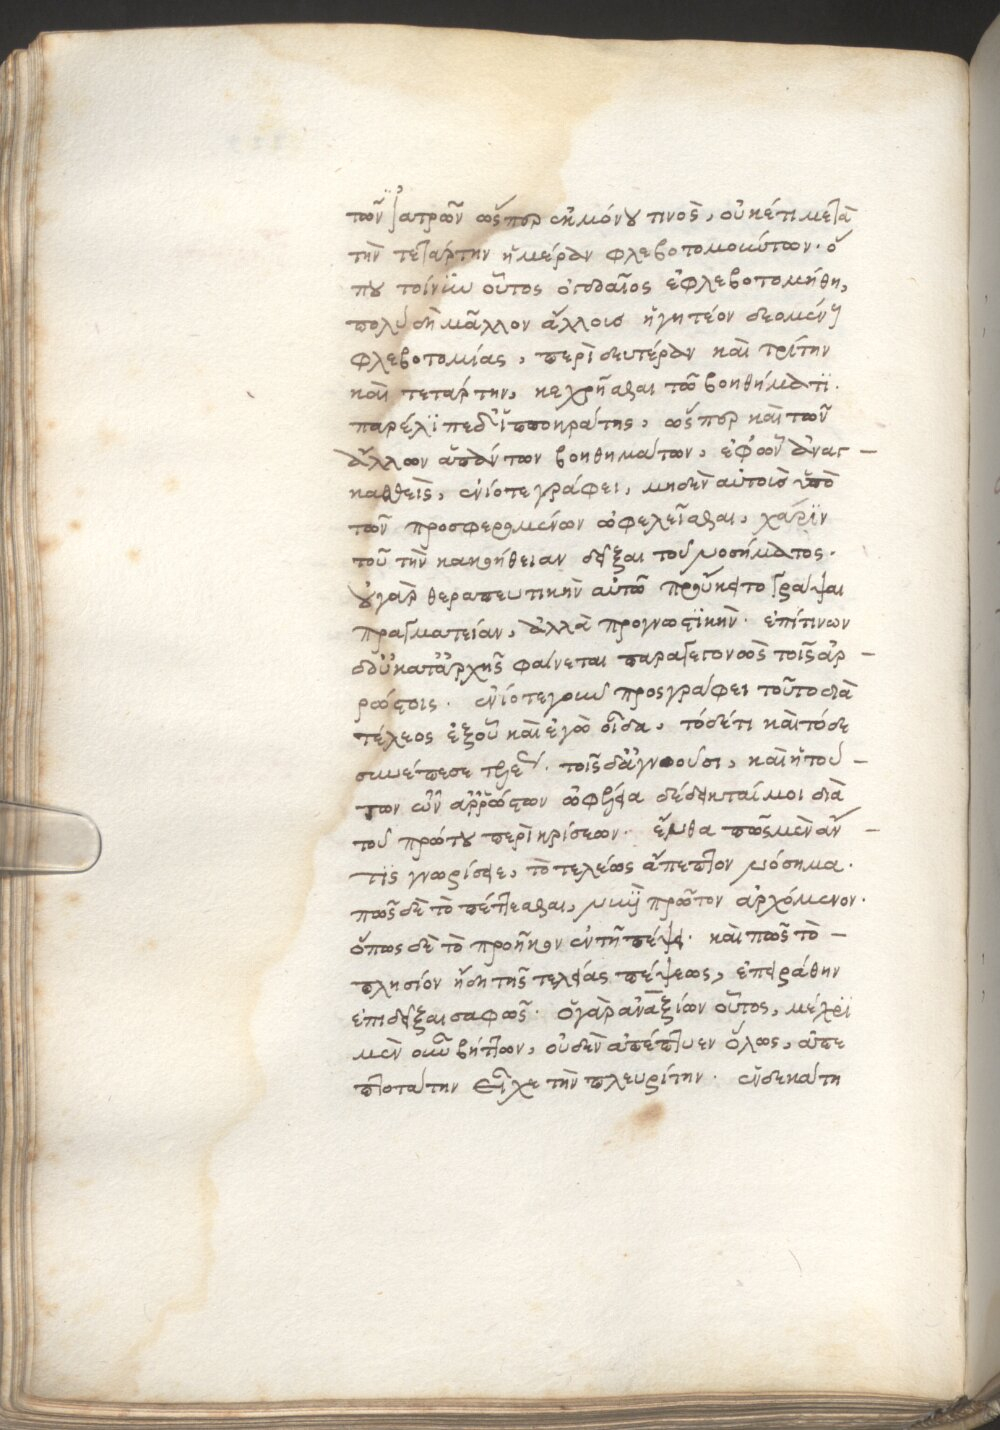 τῶν ἰατρῶν ὥσπερ ἐκ μόνου τινὸς, οὐκέτι μετὰ
τὴν τετάρτην ἡμέραν φλεβοτομούντων· ὅ
που τοίνυν οὗτος ὀγδαῖος ἐφλεβοτομήθη,
πολὺ δὴ μᾶλλον ἄλλοις ἡγητέον δεομένου
φλεβοτομίας, περὶ δευτέραν καὶ τρίτην
καὶ τετάρτην, κεχρῆσθαι τῶ βοηθήματι.
παρέλιπε δ' ἱπποκράτης, ὥσπερ καὶ τῶν
ἄλλων ἁπάντων βοηθημάτων, ἐφ' ὧν ἀνας –
καθεὶς, ἐνίοτε γράφει, μηδὲν αὐτοῖς ὑπὸ
τῶν προσφερομένων ὠφελεῖσθαι, χάριν
τοῦ τὴν κακοήθειαν δεῖξαι τοῦ νοσήματος.
οὐ γὰρ θεραπευτικὴν αὐτῶ προὔκειτο γράψαι
πραγματείαν, ἀλλὰ προγνωστικήν· ἐπί τινων
δ' οὖν κατ' ἀρχῆς φαίνεται παραγεγονὼς τοῖς ἀρ –
ρώστοις. ἐνίοτε γοῦν προσγράφει τοῦτο διὰ
τέλεος ἐξ οὗ καὶ ἐγὼ οἶδα, τόδ' ἔτι καὶ τόδε
συνέπεσε τοῖς δ' ἀγνοοῦσι, καὶ ἡ τού –
των ὧν ἀρρώστων ὠφέλεια δέδεικταί μοι διὰ
τοῦ πρώτου περὶ κρίσεων· ἔνθα πῶς μὲν ἄν –
τις γνωρίσειε, τὸ τελείως ἄπεπτον νόσημα.
πῶς δὲ τὸ πέττεσθαι, νυνὶ πρῶτον ἀρχόμενον.
ὅπως δὲ τὸ προῆκον ἐν τῆ πέψει· καὶ πῶς τὸ –
πλησίον ἤδη τῆς τελείας πέψεως, ἐπειράθην
ἐπιδεῖξαι σαφῶς· ὁ γὰρ ἀναξίων οὗτος, μέχρι
μὲν οὖν βήττων, οὐδὲν ἀπέπτυεν ὅλως, ἀπε
πτοτάτην εἶχε τὴν πλευρίτην· ἑνδεκάτη